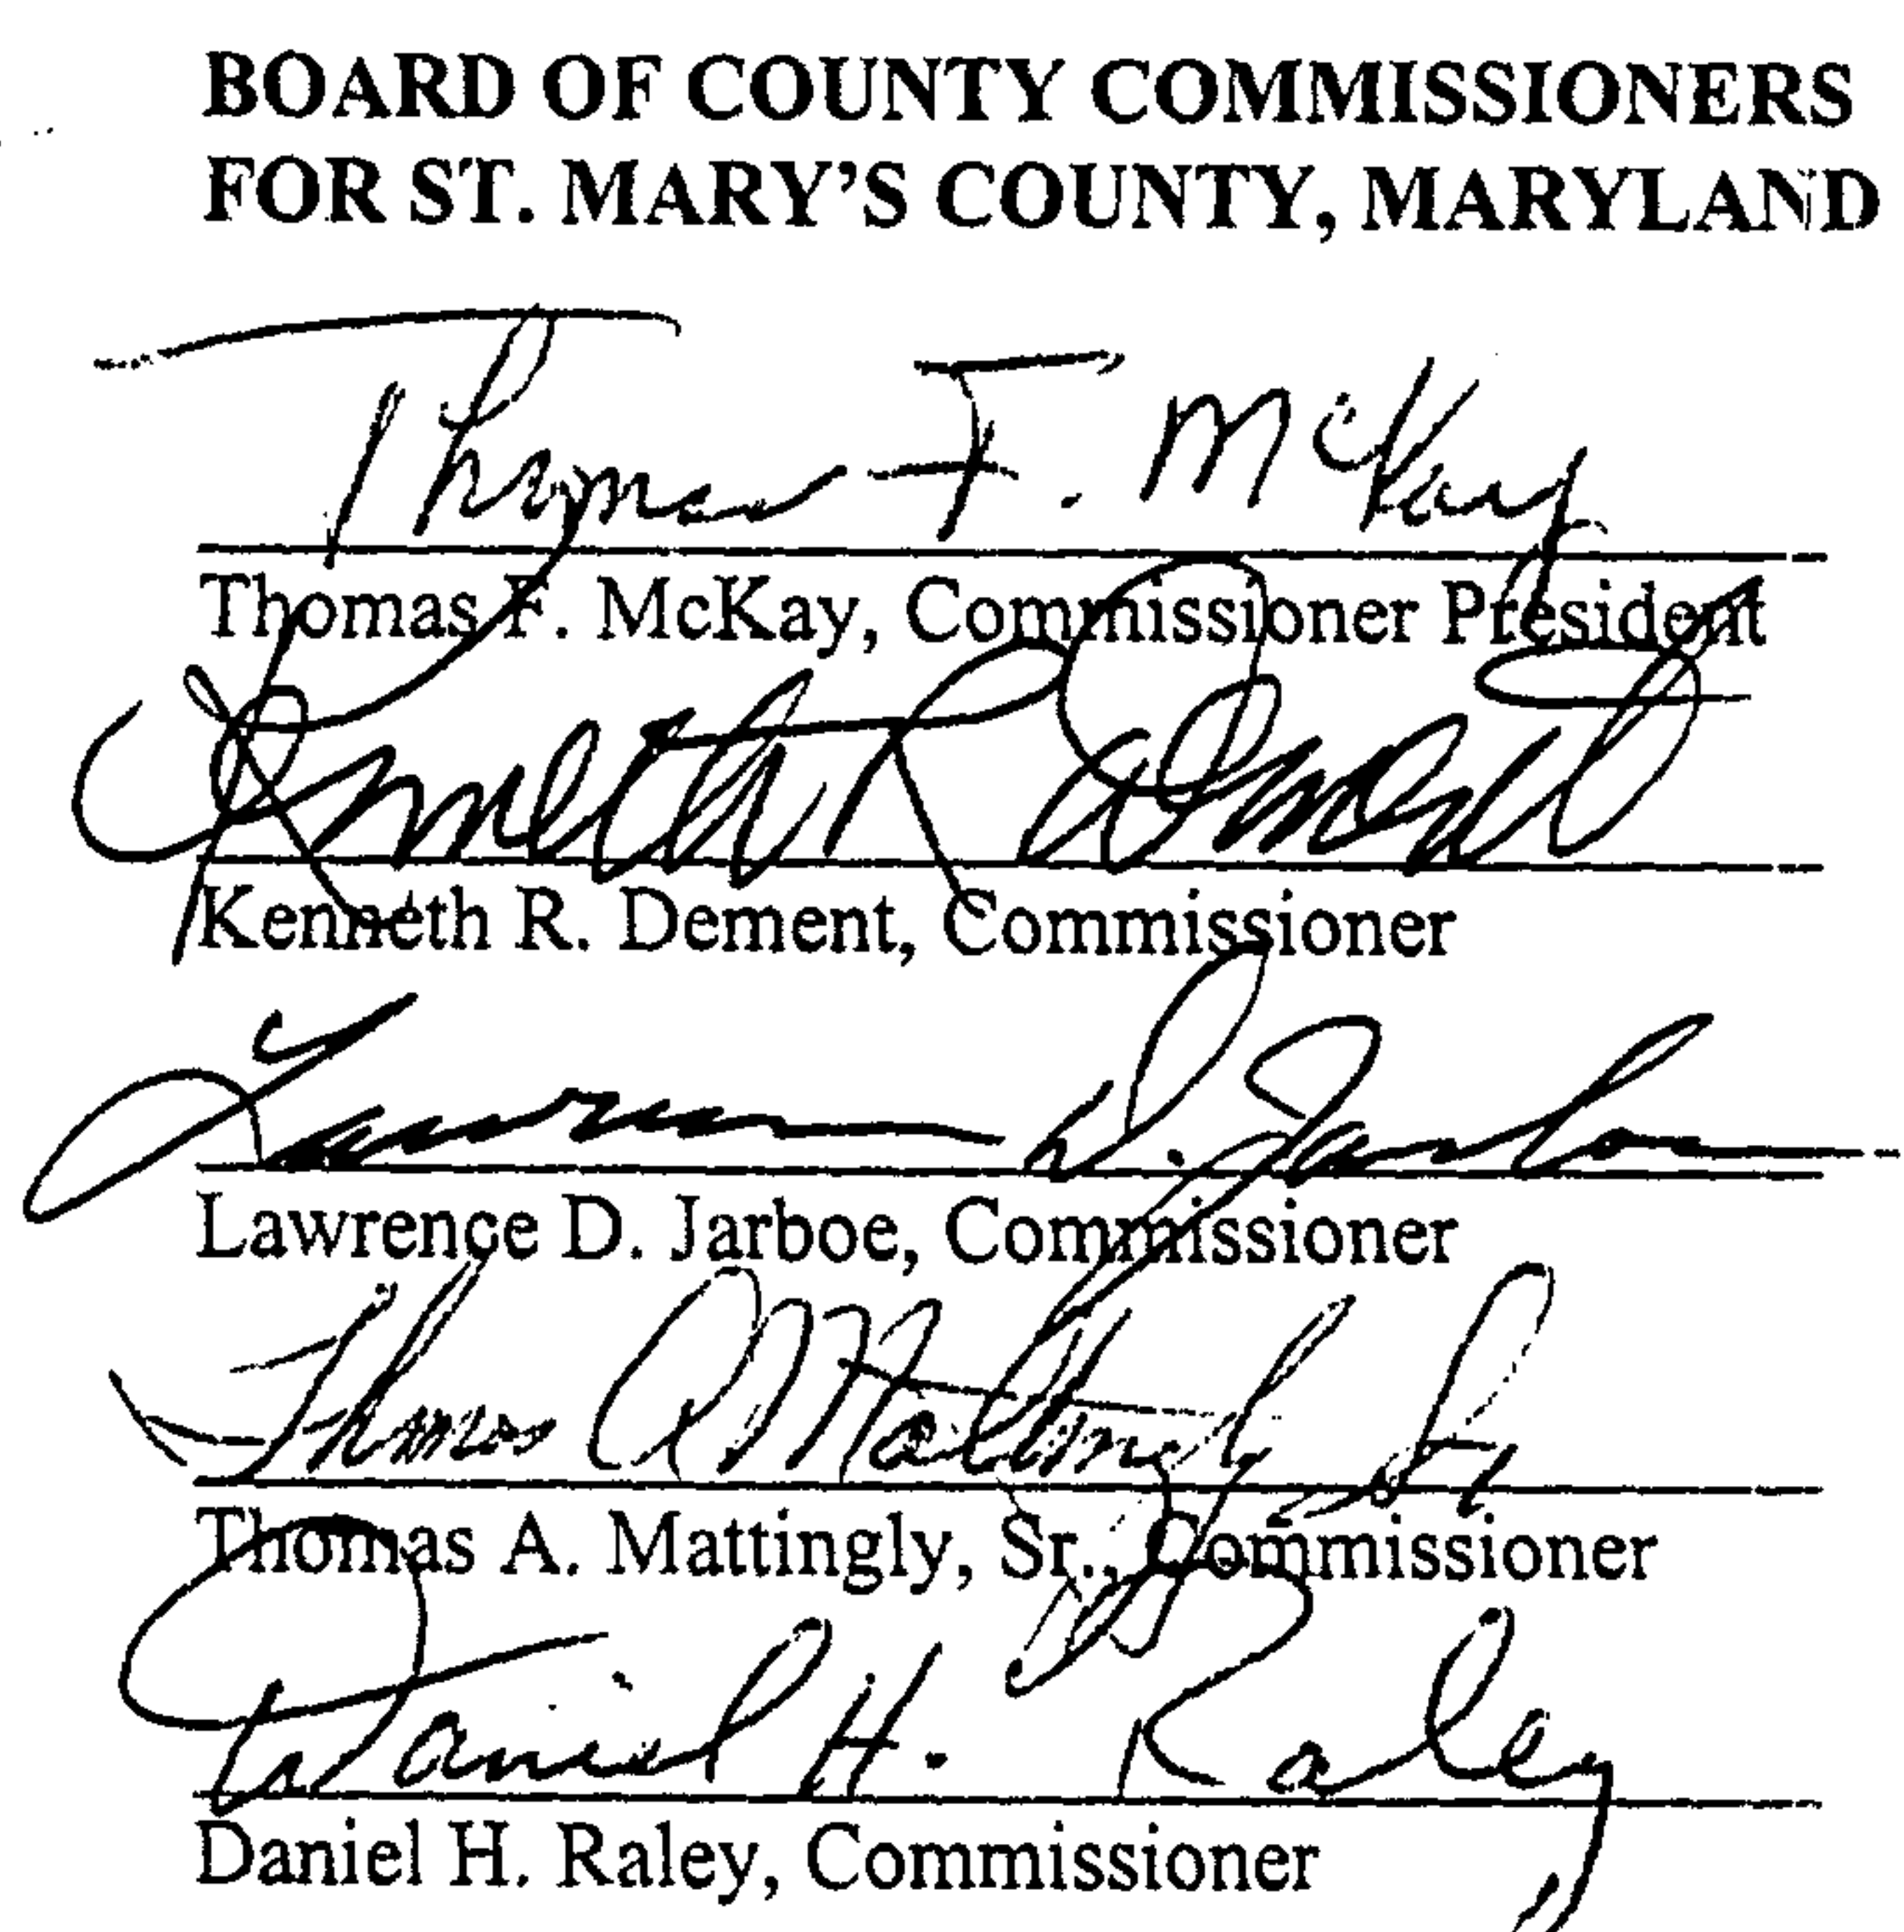 BOARD OF COUNTY COMMISSIONERS
FOR ST. MARY'S COUNTY, MARYLAND
Thomas F. McKay
Thomas F. McKay, Commissioner President
Kenneth R Dement
Kenneth R. Dement, Commissioner
Lawrence D. Jarboe
Lawrence D. Jarboe, Commissioner
Thomas A Mattingly Sr
Thomas A. Mattingly, Sr., Commissioner
Daniel H. Raley
Daniel H. Raley, Commissioner